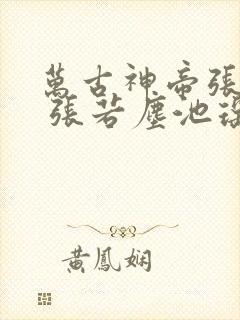 萬古神帝張
張若塵池
黃鳳嫻